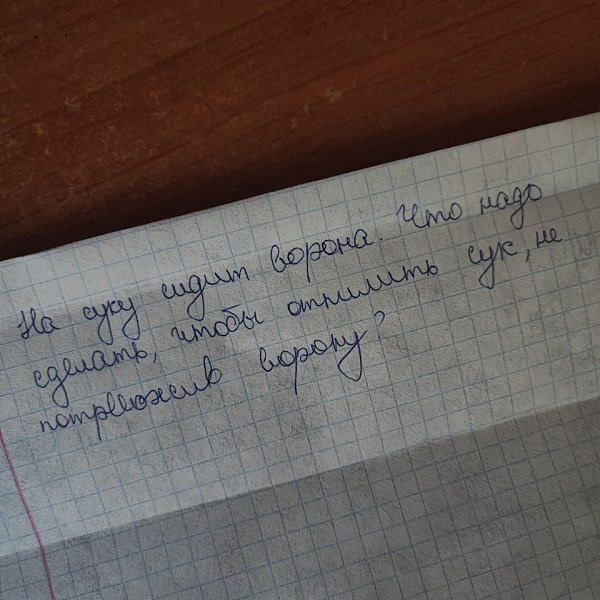 На суку сидит ворона. Что надо
сделать, чтобы отпилить сук, не
потревожив ворону?